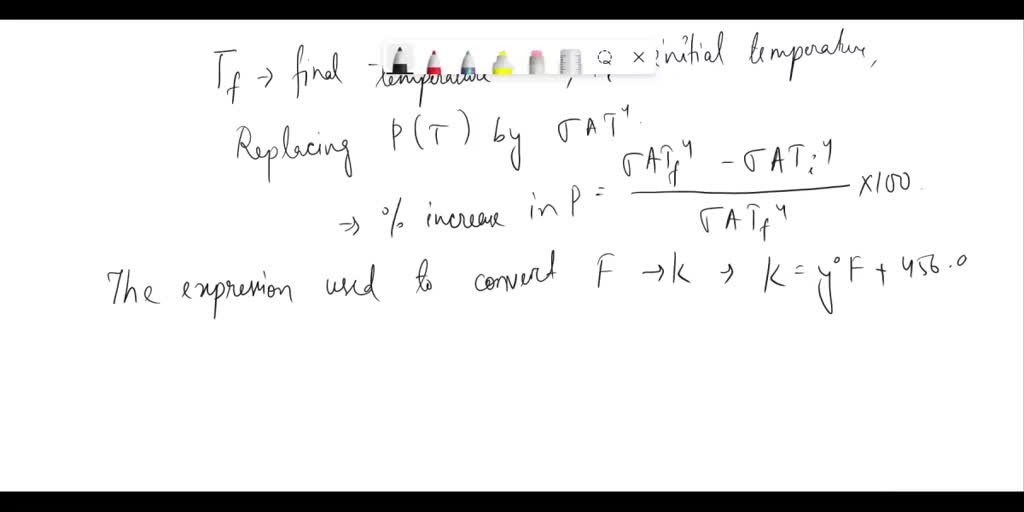 T_f → final temperature, initial temperature,
Replacing P(T) by σAT⁴.
→ % increase in P = (σAT_f⁴ - σAT_i⁴) / (σAT_f⁴) ×100.
The expression used to convert F → K → K = y°F + 456.0